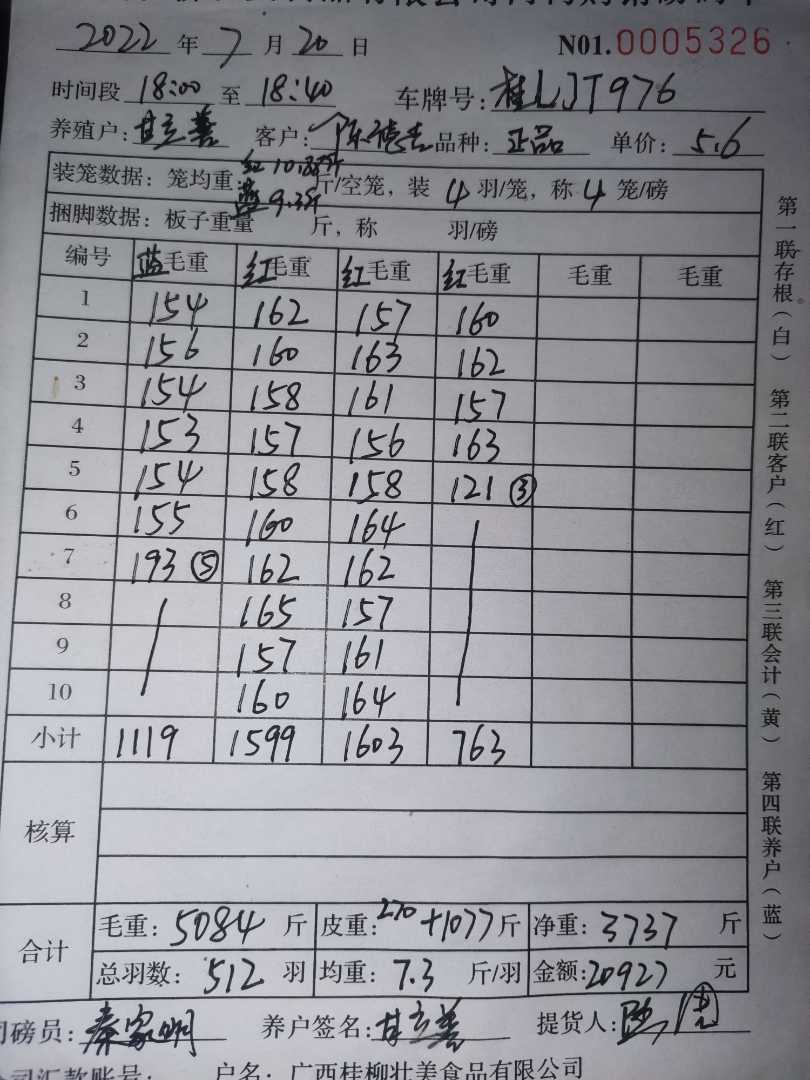 2022 年 7 月 20 日 N01.0005326
时间段 18:00 至 18:40 车牌号: 桂LJT976
养殖户: 甘立善 客户: 陈德 品种: 正品 单价: 5.6
装笼数据: 笼均重: 红 斤/空笼, 装 4 羽/笼, 称 4 笼/磅
蓝 9.3斤
捆脚数据: 板子重量 斤, 称 羽/磅
编号 蓝毛重 红毛重 红毛重 红毛重 毛重 毛重
1 154 162 157 160
2 156 160 163 162
3 154 158 161 157
4 153 157 156 163
5 154 158 158 121 ③
6 155 160 164
7 193 ⑤ 162 162
8 165 157
9 157 161
10 160 164
小计 1119 1599 1603 763
核算
合计
毛重: 5084 斤 皮重: 270+1077 斤 净重: 3737 斤
总羽数: 512 羽 均重: 7.3 斤/羽 金额: 20927 元
司磅员: 秦家明 养户签名: 甘立善 提货人:
公司汇款账号: 户名: 广西桂柳壮美食品有限公司
第一联存根(白) 第二联客户(红) 第三联会计(黄) 第四联养户(蓝)